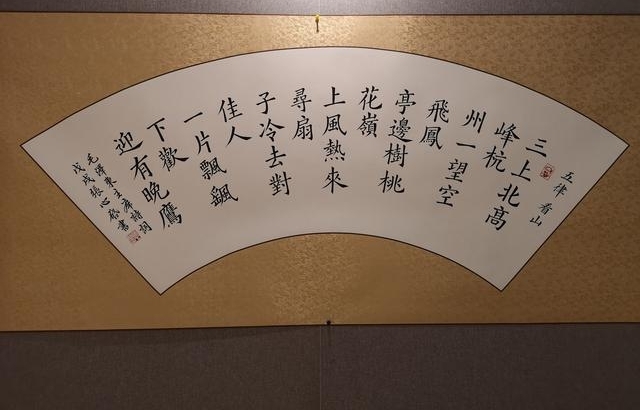 五律 看山
三上北高
峰杭
州一望空
飛鳳
亭邊樹桃
花嶺
上風熱來
尋扇
子冷去對
佳人
一片飄颻
下歡
迎有晚鷹
毛澤東主席詩詞
戊戌張心書